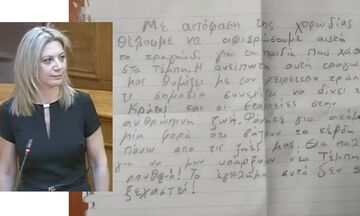 Με απόφαση της χορωδίας
θέλουμε να αφιερώσουμε αυτό
το τραγούδι για τα παιδιά που χάσα
στα Τέμπη. Η ανείπωτη αυτή τραγω
μας θυμίζει με τον χειρότερο τρόπ
τι σημασία συνεχίζει να δίνει τ
Κράτος και οι εταιρείες στην
ανθρώπινη ζωή. Φάνηκε για ακόμα
μία φορά ότι βάζουν τα κέρδη
πάνω από τις ζωές μας. Θα παλ
για να μην υπάρξουν νέα Τέμπη
πουθενά! Το έγκλημα αυτό δεν
ξεχαστεί!